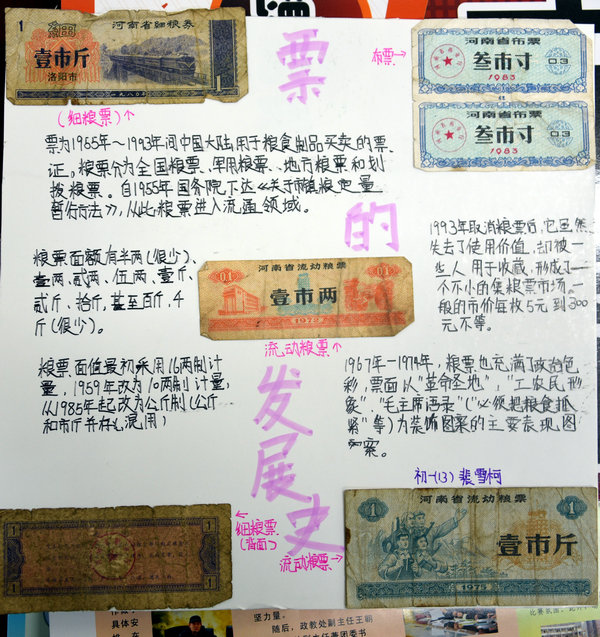 1
河南省细粮券
壹市斤
洛阳市
一九八〇年
1
票的发展史
布票→
河南省布票
叁市寸
03
1983
河南省布票
叁市寸
03
1983
(细粮票)↑
票为1955年～1993年间中国大陆用于粮食制品买卖的票
证。粮票分为全国粮票、军用粮票、地方粮票和划
拨粮票。自1955年国务院下达《关于
定量
暂行方法》，从此粮票进入流通领域。
粮票面额有半两(很少)、
壹两、贰两、伍两、壹斤、
贰斤、拾斤，甚至百斤，千
斤(很少)。
01
河南省流动粮票
01
壹市两
1972
流动粮票↑
1993年取消粮票后，它虽然
失去了使用价值，却被一
些人用于收藏，形成了一
个不小的集粮票市场。一
般的市价每枚5元到300
元不等。
粮票面值最初采用16两制计
量，1959年改为10两制计量，
从1985年起改为公斤制(公斤
和市斤并存，混用)
1967年—1974年，粮票也充满了政治色
彩，票面以"革命圣地"，"工农民形
象""毛主席语录"("必须把粮食抓
紧"等)为装饰图案的主要表现图
案。
初一(13) 裴雪柯
1
1
←细粮票
(背面)
流动粮票→
河南省流动粮票
1
壹市斤
1975
坐力量。
随后，政教处副主任王朝
副主任兼团委书
具体安